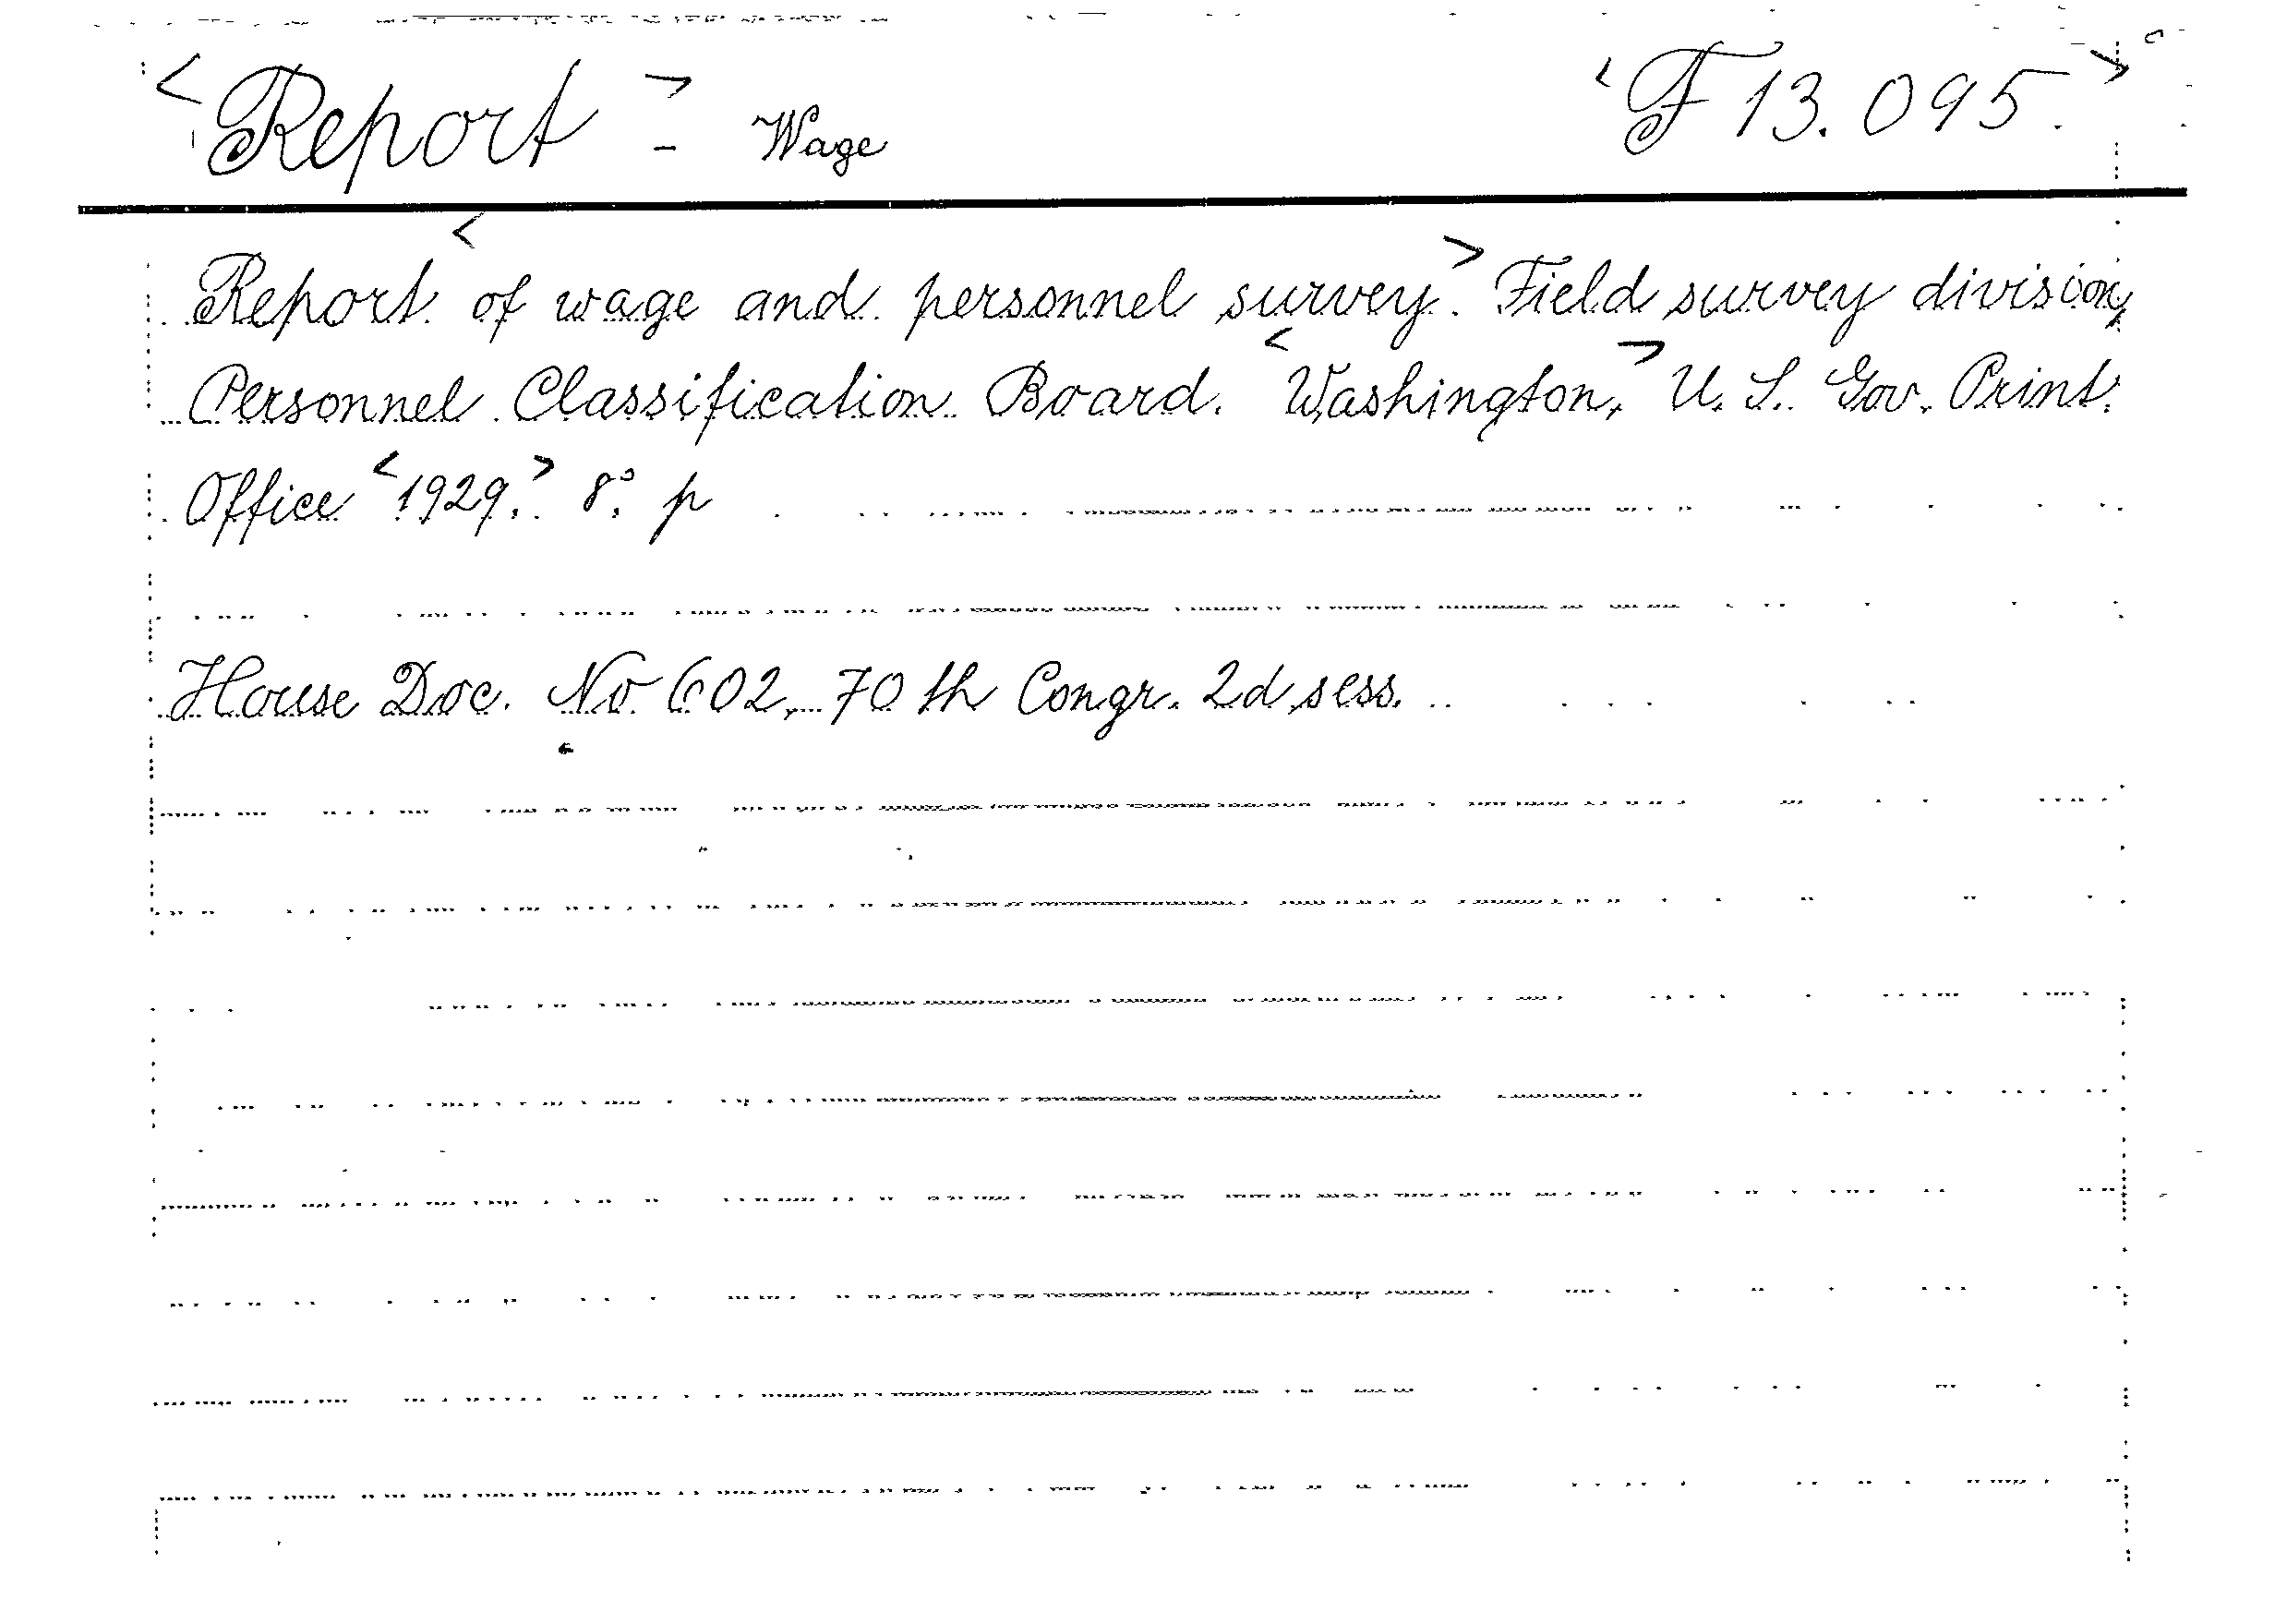 <Report> - Wage <F 13.095.>
Report <of wage and personnel survey.> Field survey division,
Personnel Classification Board. <Washington,> U. S. Gov. Print.
Office <1929.> 8°. p
House Doc. No 602, 70th Congr. 2d sess.